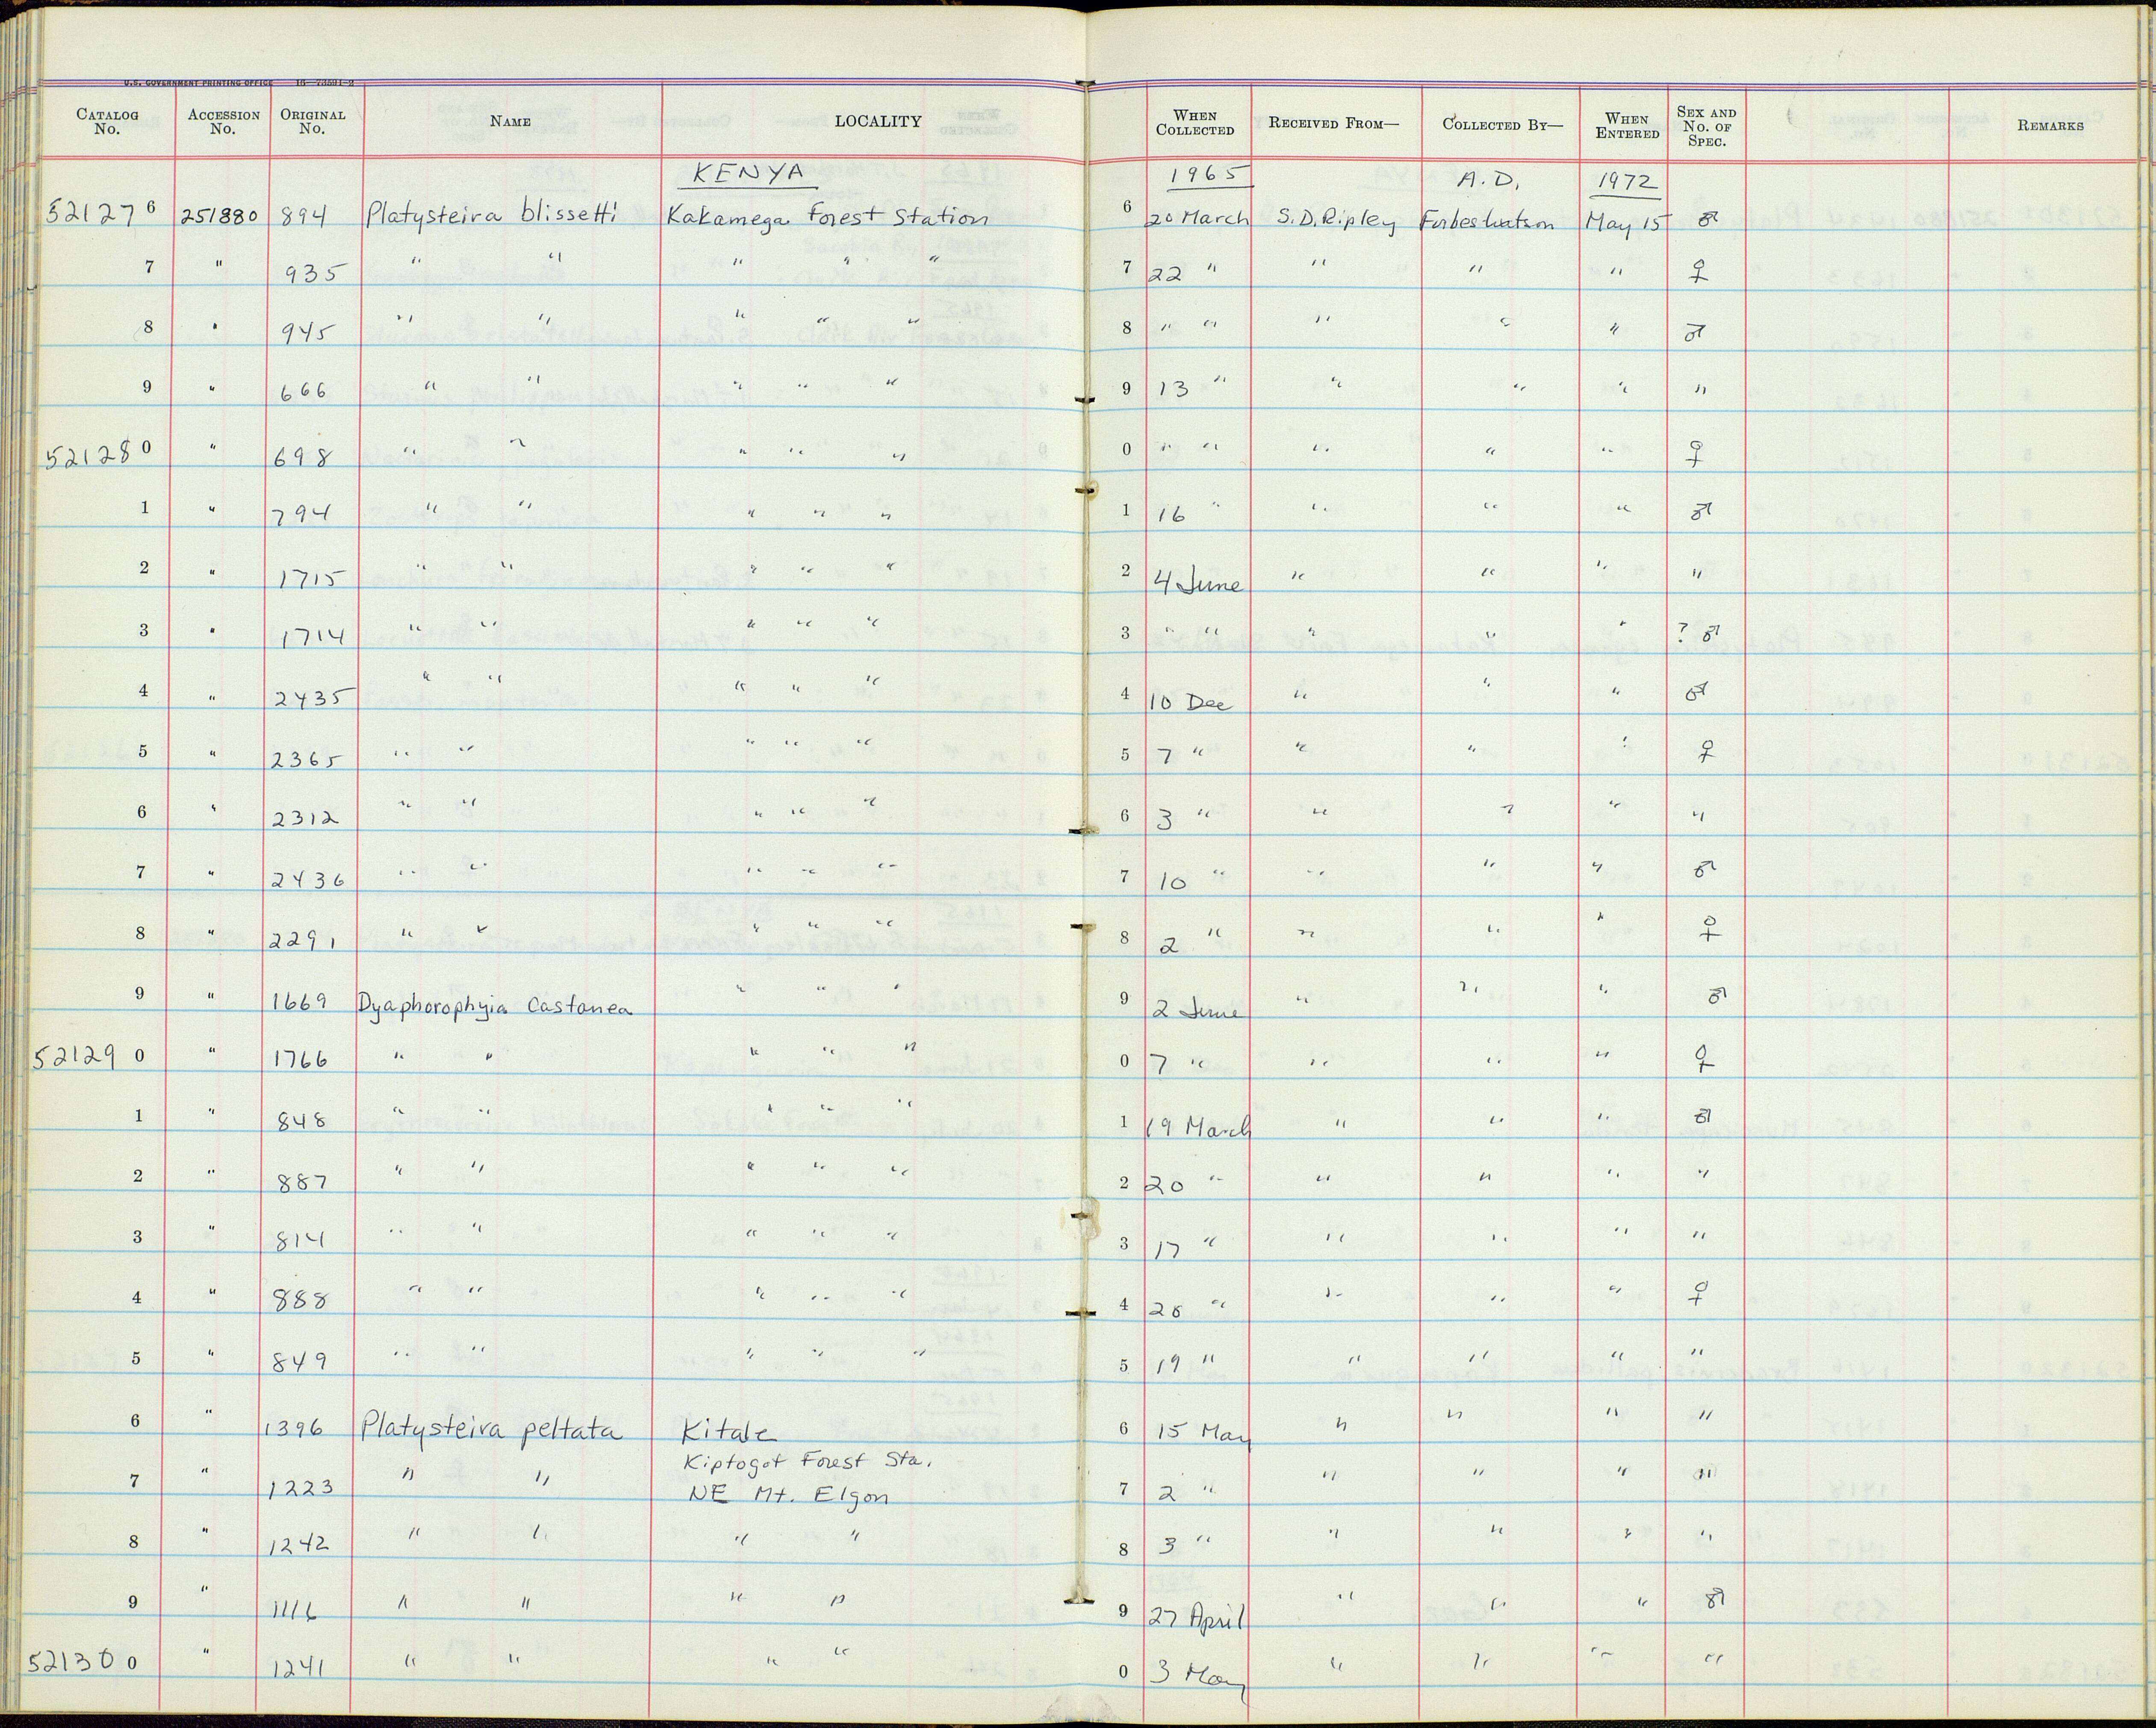 U.S. GOVERNMENT PRINTING OFFICE 16—73591-2
CATALOG No. ACCESSION No. ORIGINAL No. NAME LOCALITY WHEN COLLECTED RECEIVED FROM— COLLECTED BY— WHEN ENTERED SEX AND No. OF SPEC. REMARKS
KENYA 1965 A.D. 1972
521276 251880 894 Platysteira blissetti Kakamega Forest Station 6 20 March S.D. Ripley Forbes-Watson May 15 ♂
7 " 935 " " " " " 7 22 " " " " ♀
8 " 945 " " " " " 8 " " " " " ♂
9 " 666 " " " " " 9 13 " " " " "
521280 " 698 " " " " " 0 " " " " " ♀
1 " 794 " " " " " 1 16 " " " " ♂
2 " 1715 " " " " " 2 4 June " " " "
3 " 1714 " " " " " 3 " " " " " ? ♂
4 " 2435 " " " " " 4 10 Dec " " " ♂
5 " 2365 " " " " " 5 7 " " " " ♀
6 " 2312 " " " " " 6 3 " " " " "
7 " 2436 " " " " " 7 10 " " " " ♂
8 " 2291 " " " " " 8 2 " " " " ♀
9 " 1669 Dyaphorophyia castanea " " " 9 2 June " " " ♂
521290 " 1766 " " " " " 0 7 " " " " ♀
1 " 848 " " " " " 1 19 March " " " ♂
2 " 887 " " " " " 2 20 " " " " "
3 " 814 " " " " " 3 17 " " " " "
4 " 888 " " " " " 4 20 " " " " ♀
5 " 849 " " " " " 5 19 " " " " "
6 " 1396 Platysteira peltata Kitale 6 15 May " " " "
Kiptogot Forest Sta.
7 " 1223 " " NE Mt. Elgon 7 2 " " " " "
8 " 1242 " " " " 8 3 " " " " "
9 " 1116 " " " " 9 27 April " " " ♂
521300 " 1241 " " " " 0 3 May " " " "